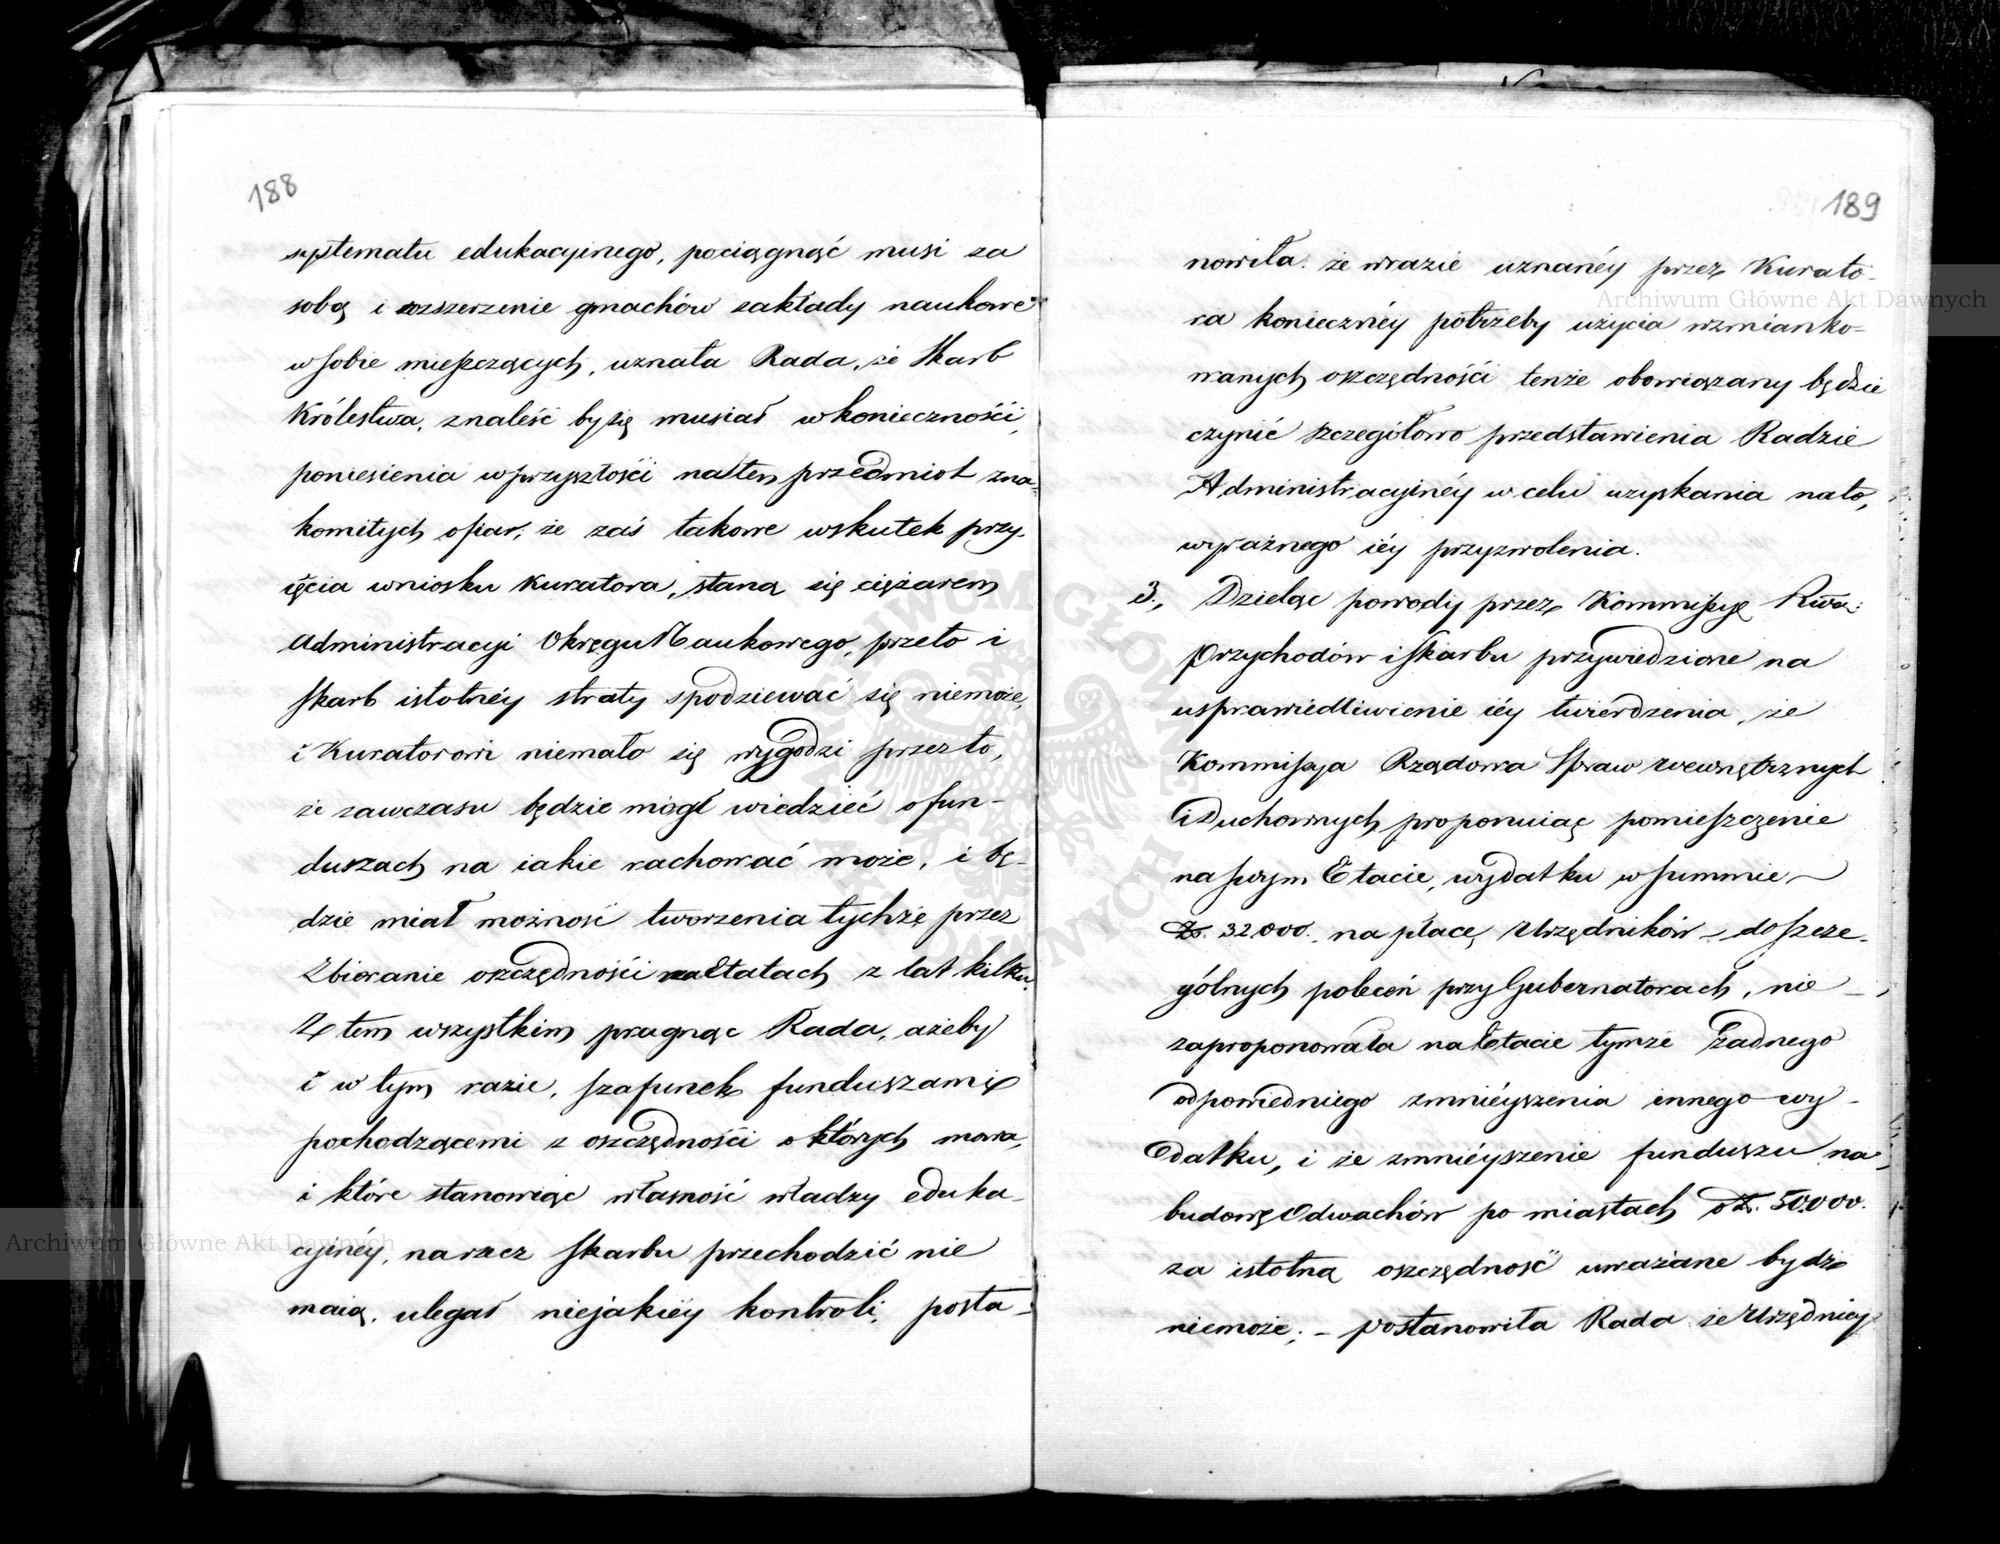 188
systematu edukacyinego, pociągnąć musi za
sobą i rozszerzenie gmachów zakłady naukowe
w sobie mieszczących, uznała Rada, że Skarb
Królestwa, znaleść by się musiał w konieczności,
poniesienia w przyszłości na ten przedmiot zna-
komitych ofiar, że zaś takowe wskutek przy-
ięcia wniosku Kuratora, staną się ciężarem
Administracyi Okręgu Naukowego, przeto i
Skarb istotnéy straty spodziewać się niemoże,
i Kuratorowi niemało się wygodzi przez to,
że zawczasu będzie mógł wiedzieć o fun-
duszach na iakie rachować może, i bę-
dzie miał możność tworzenia tychże przez
Zbieranie oszczędności na Etatach z lat kilku.
Z tem wszystkim pragnąc Rada, ażeby
i w tym razie, szafunek funduszami
pochodzącemi z oszczędności o których mowa,
i które stanowiąc własność władzy eduka-
cyinéy, na rzecz Skarbu przechodzić nie
maią, ulegał niejakiéy kontroli, posta-
189
nowiła: że w razie uznanéy przez Kurato-
ra koniecznéy potrzeby użycia wzmianko-
wanych oszczędności tenże obowiązany będzie
czynić szczegółowo przedstawienia Radzie
Administracyinéy w celu uzyskania na to,
wyraźnego iéy przyzwolenia.
3., Dzieląc powody przez Kommissyę Rwą:
Przychodów i Skarbu przywiedzione na
usprawiedliwienie iéy twierdzenia, że
Kommissya Rządowa Spraw Wewnętrznych
i Duchownych proponuiąc pomieszczenie
na swym Etacie, wydatku w summie
Zł. 32000. na płacę Urzędników do szcze-
gólnych poleceń przy Gubernatorach, nie
zaproponowała na Etacie tymże żadnego
odpowiedniego zmniéyszenia innego wy-
datku, i że zmniéyszenie funduszu na
budowę Odwachów po miastach o Zł. 50000.
za istotną oszczędność uważane bydź
niemoże; – postanowiła Rada że Urzędnicy
Archiwum Główne Akt Dawnych
Archiwum Główne Akt Dawnych
ARCHIWUM GŁÓWNE AKT DAWNYCH